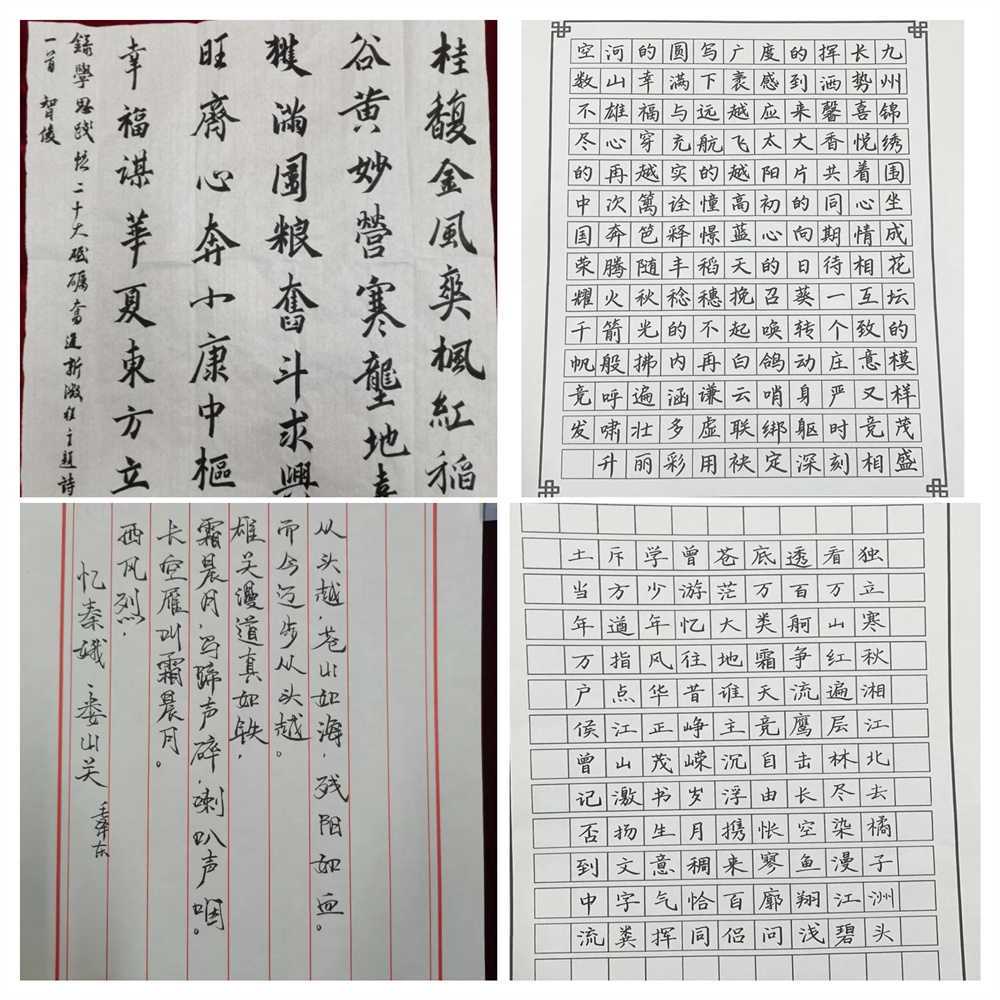 桂馥金風爽楓紅稻
谷黄妙營寒壟地喜
獲滿園粮奮斗求興
旺齊心奔小康中樞
幸福謀華夏東方立
錄學思踐悟二十大砥礪奮進新徵程主題詩
一首 智俊
九州锦绣围坐成花坛的模样茂盛
长势喜悦着心情相互致意又竞相
挥洒馨香共同期待一个庄严时刻
的到来大片的向日葵转动身躯深
度感应太阳初心的召唤鸽哨绑定
广袤越飞越高蓝天挽起白云联袂
写下远航的憧憬稻穗不再谦虚用
圆满与充实诠释丰稔的内涵多彩
的幸福穿越篱笆随秋光拂遍壮丽
河山雄心再次奔腾火箭般呼啸升
空数不尽的中国荣耀千帆竞发
忆秦娥·娄山关 毛泽东
西风烈，
长空雁叫霜晨月。
霜晨月，马蹄声碎，喇叭声咽。
雄关漫道真如铁，
而今迈步从头越。
从头越，苍山如海，残阳如血。
独立寒秋湘江北去橘子洲头
看万山红遍层林尽染漫江碧
透百舸争流鹰击长空鱼翔浅
底万类霜天竞自由怅寥廓问
苍茫大地谁主沉浮携来百侣
曾游忆往昔峥嵘岁月稠恰同
学少年风华正茂书生意气挥
斥方遒指点江山激扬文字粪
土当年万户侯曾记否到中流